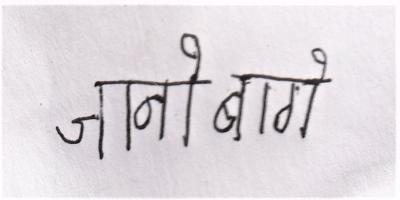 जानो बागे